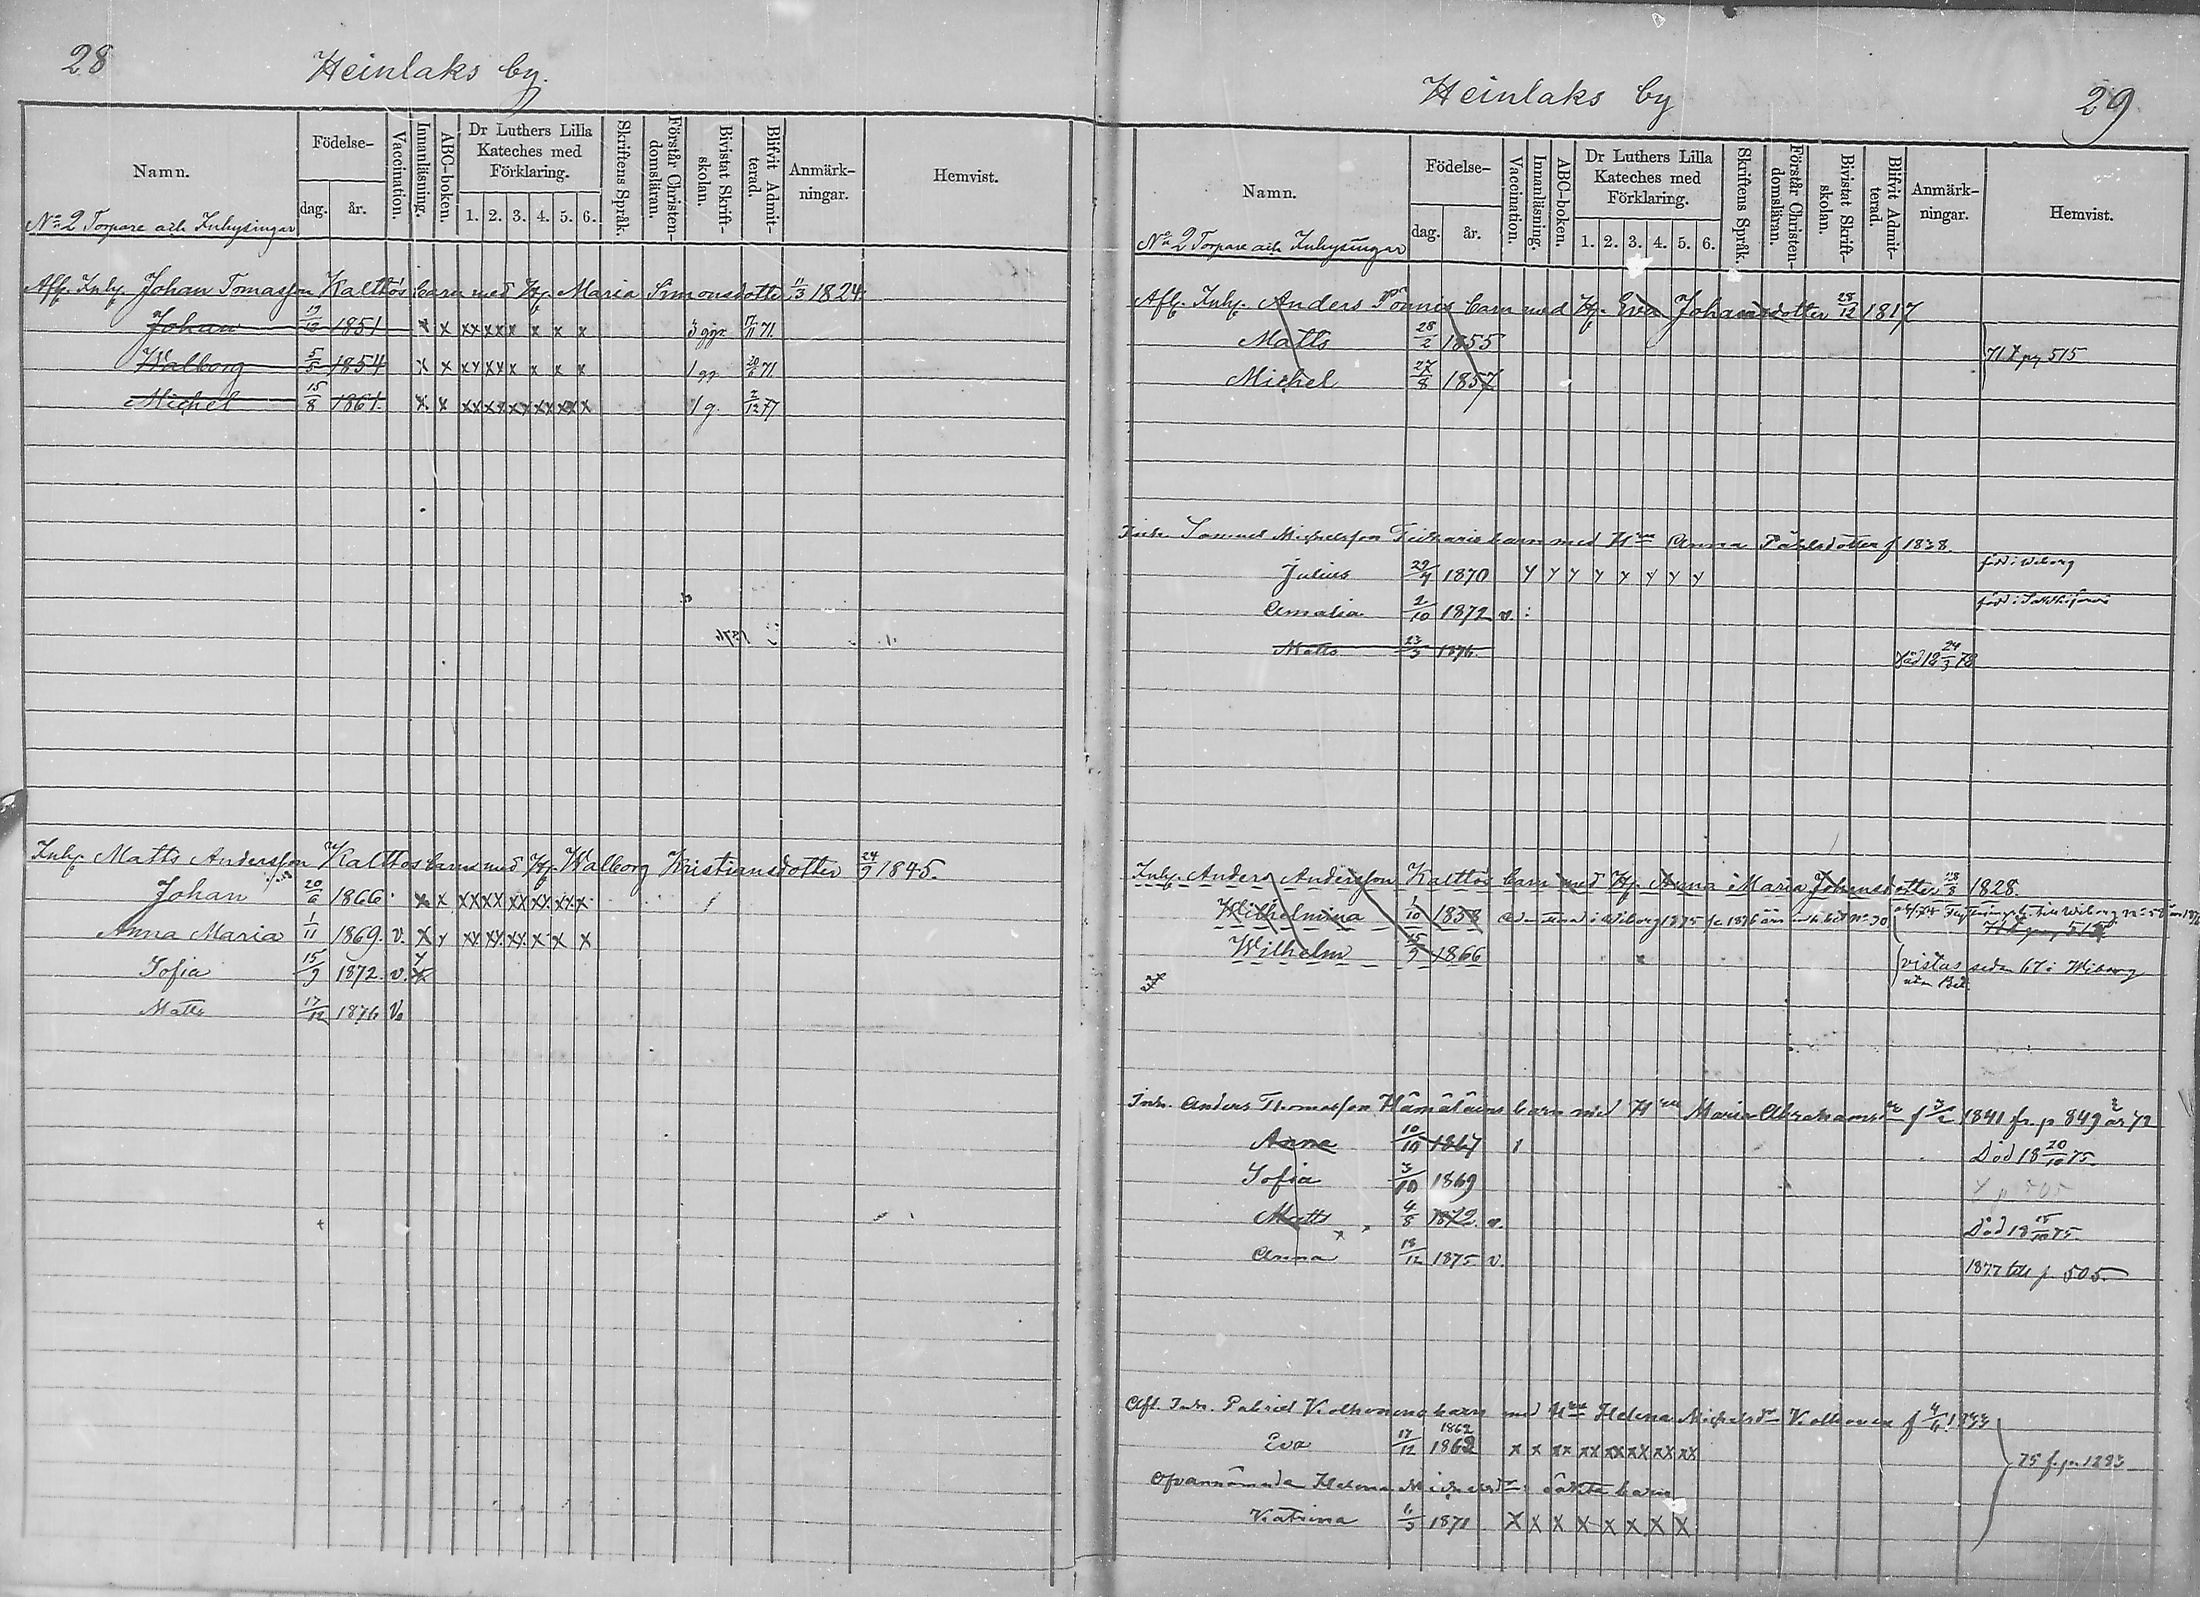 28
Heinlaks by.
Namn.
Födelse-
dag.
år.
Vaccination.
Innanläsning.
ABC-boken.
Dr Luthers Lilla
Kateches med
Förklaring.
1. 2. 3. 4. 5. 6.
Skriftens Språk.
Förstår Christen-
domsläran.
Bivistat Skrift-
skolan.
Blifvit Admit-
terad.
Anmärk-
ningar.
Hemvist.
No 2 Torpare och Inhysingar
Afl. Inhy. Johan Tomasson Kalttos barn med H. Maria Simonsdotter 11/3 1824.
Johan 19/12 1851 x x xx xx x x x x 3 ggr 17/11 71.
Walborg 5/5 1854 x x xx xx x x x x 1 gg 20/6 71
Michel 15/8 1861. x x xx xx xx xx xx x 1 g. 2/12 77
Inhy. Matts Andersson Kalttos barn med H. Walborg Kristiansdotter 24/9 1845.
Johan 20/6 1866 x x xx xx xx xx xx
Anna Maria 1/11 1869. v. x y xx xx xx x x x
Sofia 15/9 1872. v.
Matts 17/12 1876 v.
Heinlaks by
29
Namn.
Födelse-
dag.
år.
Vaccination.
Innanläsning.
ABC-boken.
Dr Luthers Lilla
Kateches med
Förklaring.
1. 2. 3. 4. 5. 6.
Skriftens Språk.
Förstår Christen-
domsläran.
Bivistat Skrift-
skolan.
Blifvit Admit-
terad.
Anmärk-
ningar.
Hemvist.
No 2 Torpare och Inhysingar
Afl. Inhy. Anders barn med H. Eva Johansdotter 28/12 1817
Matts 28/2 1855
71 pg 515
Michel 27/8 1857
Inh. Samuel Michelsson barn med Hu Anna Påhlsdotter f 1838.
Julius 29/4 1870 y y y y y y y y född i Wiborg
Amalia 2/10 1872 v. född i
Matts 23/3 1876. död 18 24/3 78
Inhy. Anders Andersson Kalttos barn med H. Anna Maria Johansdotter 1828.
Wilhelmina 1/10 1858
Wilhelm 15/9 1866
vistas sedan 67 i Wiborg
utan Bet.
Inh. Anders Thomasson Hämäläins barn med Hu Maria Abrahamsdr f 1841 fr. p 849 år 72
Anna 10/10 1867 1 Död 18 20/10 75.
Sofia 3/10 1869
Matts 4/8 1872 v. Död 18 15/10 75.
Anna 18/12 1875 v. 1877 till p 505.
Afl. Inh. barn med Hu Helena Michelsdr
Eva 17/12 1862 1862 x x xx xx xx xx xx xx
75 fr. p. 1283
Ofvannämnda Helena oäkta barn
Katrina 1871 x x x x x x x x